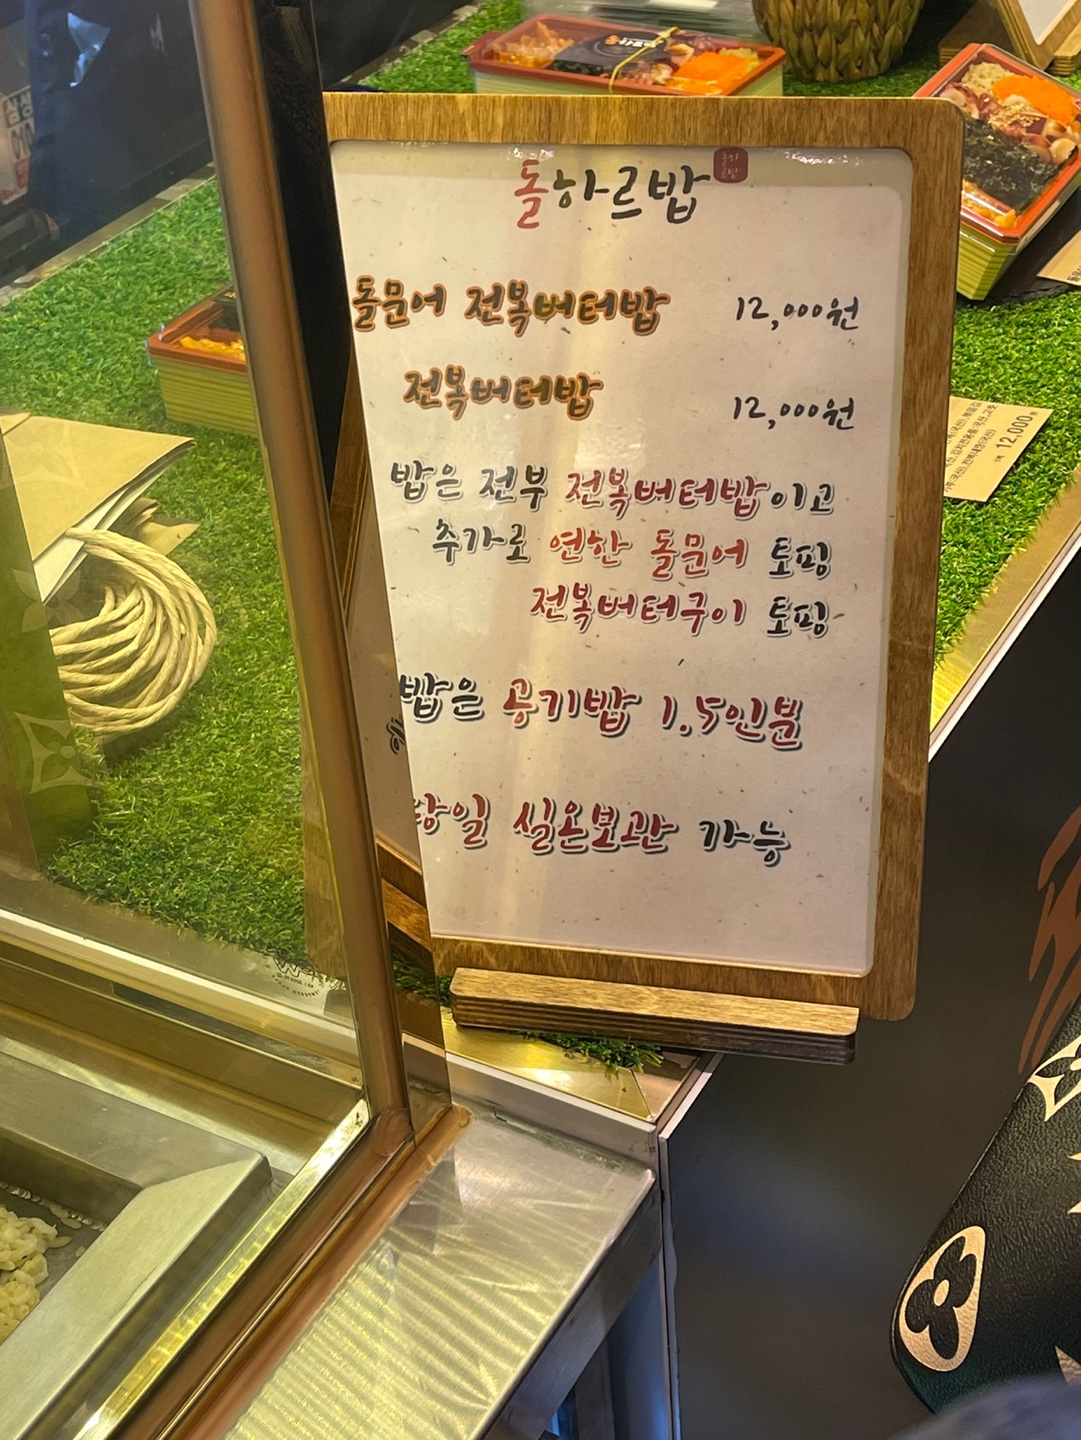 돌하르밥
돌문어 전복버터밥 12,000원
전복버터밥 12,000원
밥은 전부 전복버터밥이고
추가로 연한 돌문어 토핑
전복버터구이 토핑
밥은 공기밥 1.5인분
당일 실온보관 가능
12,000원